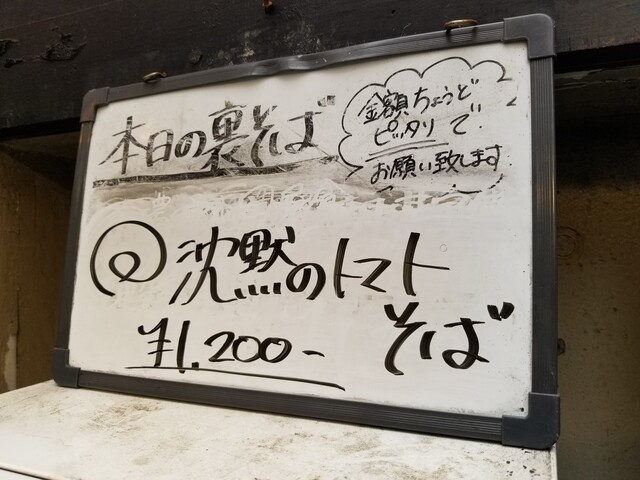 本日の裏そば
金額ちょうど
ピッタリで
お願い致します
沈黙のトマト
そば
¥1,200-